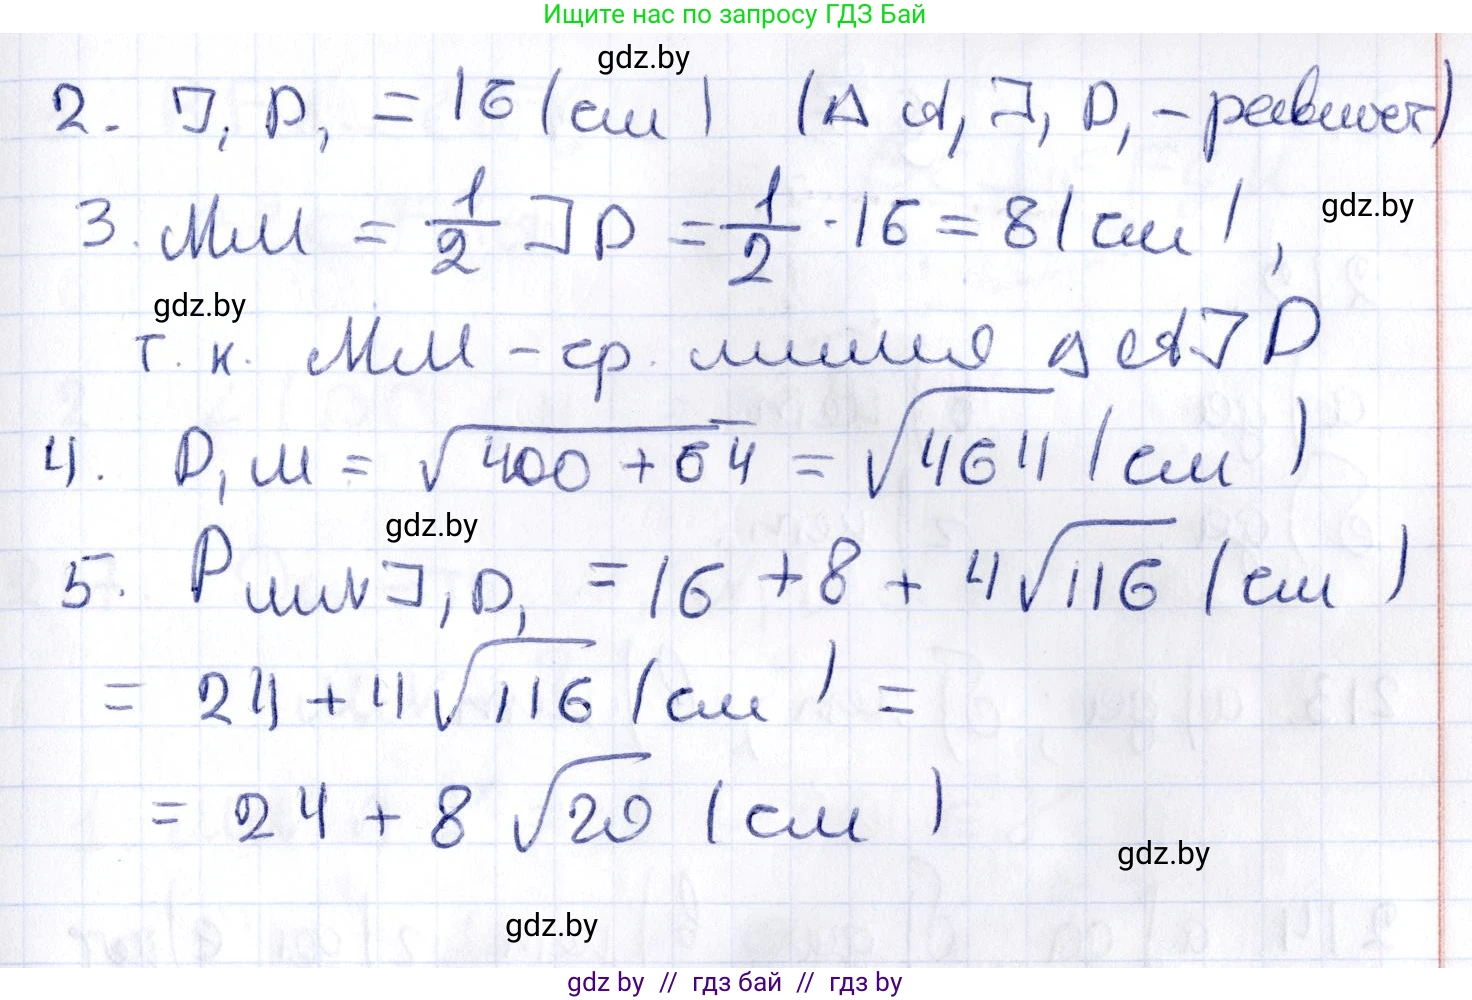 Ищите нас по запросу ГДЗ Бай
gdz.by
2. J₁ D₁ = 16 (см) (Δ A₁ J₁ D₁ - равност)
3. MM = 1/2 JD = 1/2 · 16 = 8 (см),
gdz.by
gdz.by
т. к. MM - ср. линия Δ AJD
4. D₁M = √400 + 64 = √464 (см)
gdz.by
5. P J₁D₁ = 16 + 8 + 4√116 (см)
= 24 + 4√116 (см) =
= 24 + 8 √29 (см)
gdz.by
gdz.by
gdz by // гдз бай // гдз by